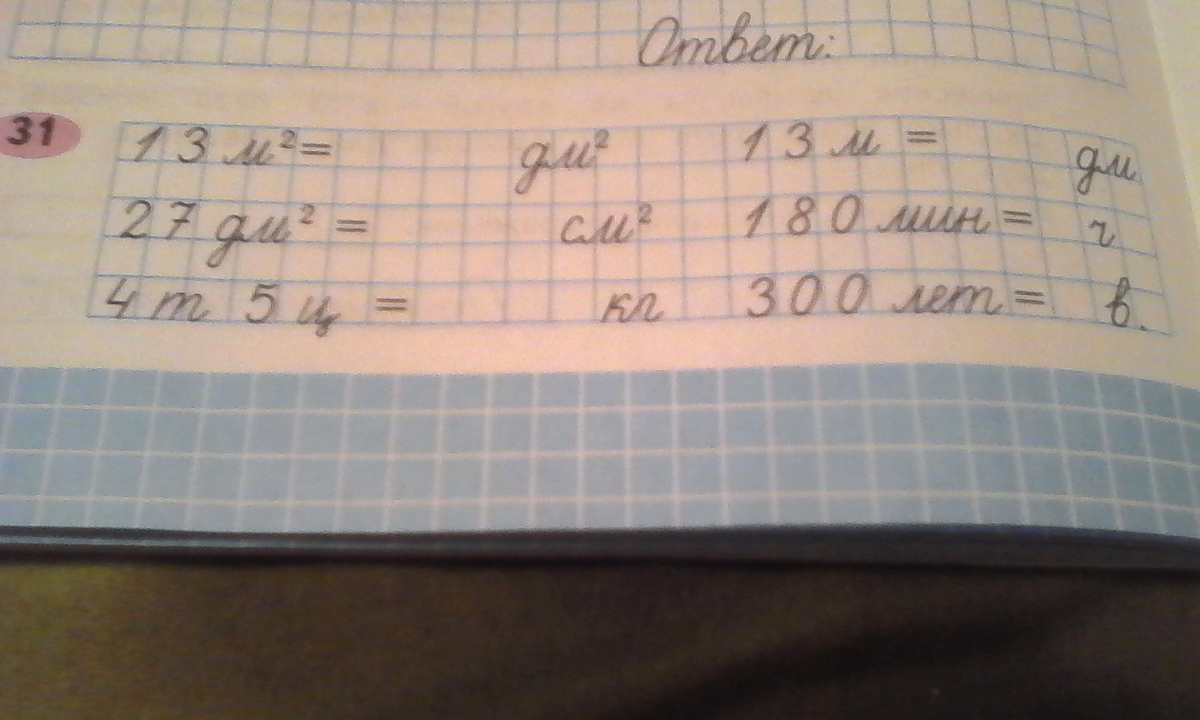 Ответ:
31
13 м²= дм² 13 м = дм
27 дм² = см² 180 мин = ч
4 т 5 ц = кг 300 лет = в.